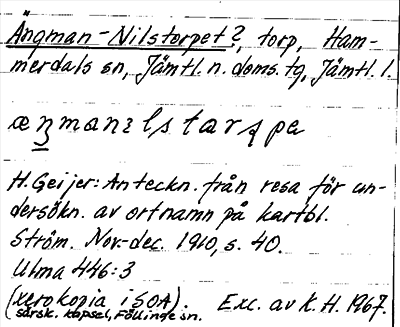 Ängman-Nilstorpet?, torp, Ham-
merdals sn, Jämtl. n. doms. tg, Jämtl. l.
H. Geijer: Anteckn. från resa för un-
dersökn. av ortnamn på kartbl.
Ström. Nov.-dec. 1910, s. 40.
Ulma 446:3
(xerokopia i SOA). Exc. av K. H. 1967.
särsk. kapsel, Föllinge sn.